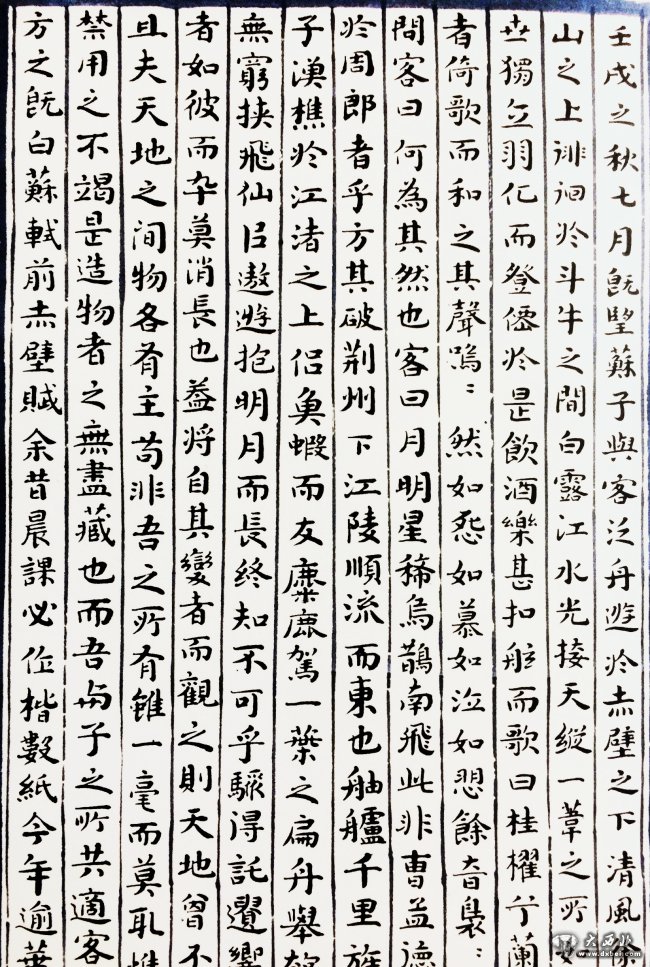 壬戌之秋七月既望蘇子與客泛舟遊於赤壁之下清風徐
山之上徘徊於斗牛之間白露江水光接天縱一葦之所
世獨立羽化而登僊於是飲酒樂甚扣舷而歌曰桂櫂兮蘭
者倚歌而和之其聲嗚〻然如怨如慕如泣如愬餘音裊〻
問客曰何為其然也客曰月明星稀烏鵲南飛此非曹孟德
於周郎者乎方其破荊州下江陵順流而東也舳艫千里旌
子漁樵於江渚之上侶魚蝦而友麋鹿駕一葉之扁舟舉匏
無窮挾飛仙㠯遨遊抱明月而長終知不可乎驟得託遺響
者如彼而卒莫消長也蓋將自其變者而觀之則天地曾不
且夫天地之間物各有主苟非吾之所有雖一毫而莫取惟
禁用之不竭是造物者之無盡藏也而吾与子之所共適客
方之既白蘇軾前赤壁賦余昔晨課必作楷數紙今年逾華
大西北
www.dxbei.com